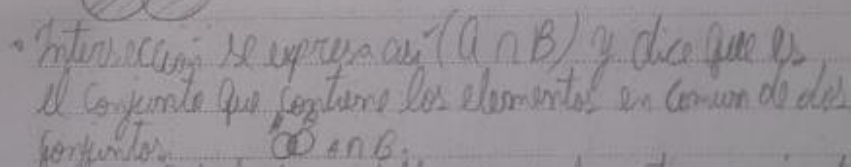 • Intersección se expresa así (A ∩ B) y dice que es
el conjunto que contiene los elementos en comun de dos
conjuntos. A B A ∩ B.